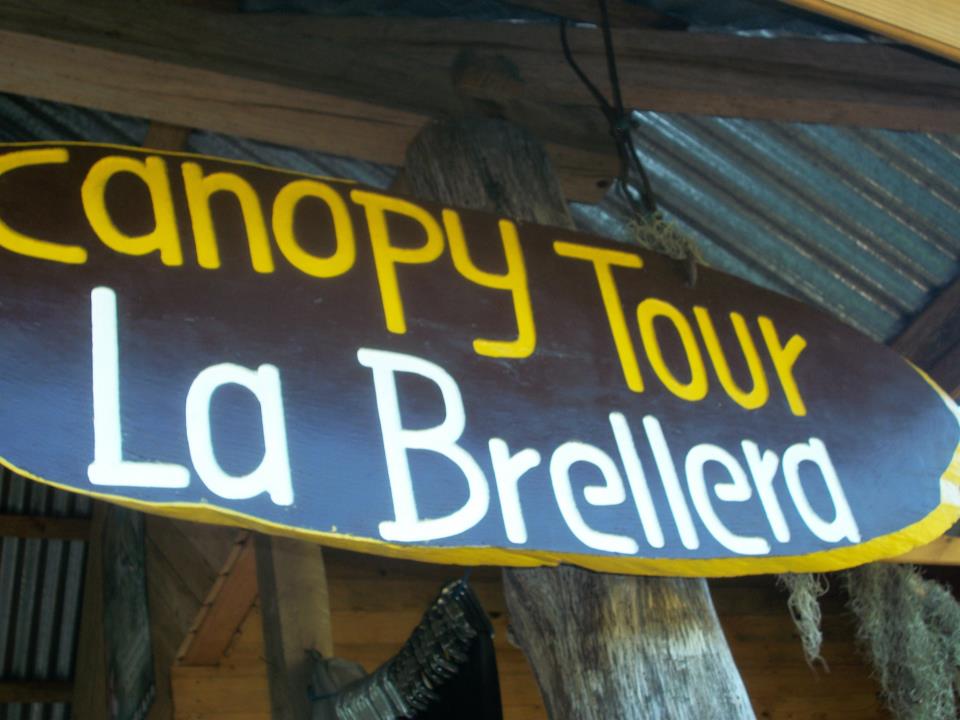 Canopy Tour
La Brellera